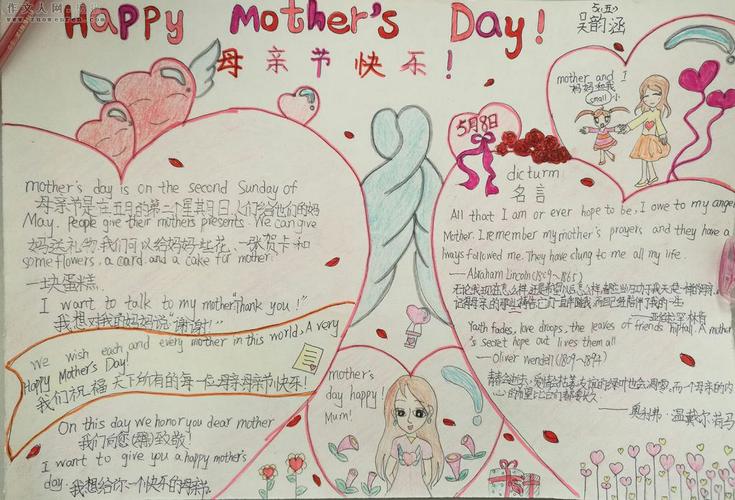 作文人网
www.zuowenren.com
Happy Mother's Day!
母亲节快乐!
五(五)
吴韵涵
mother and I
妈妈和我
small 小
5月8日
mother's day is on the second Sunday of
母亲节是在五月的第二个星其日日,人们给他们的妈
May. People give their mothers presents. We can give
妈送礼物我们可以给妈妈一些花、一张贺卡和
some flowers, a card and a cake for mother.
一块蛋糕.
I want to talk to my mother "Thank you!"
我想对我的妈妈说"谢谢!"
We wish each and every mother in this world, A very
Happy Mother's Day!
我们祝福天下所有的每一位母亲母亲节快乐!
On this day we honor you dear mother
我们向您致敬!
I want to give you a happy mother's
day. 我想给你一个快乐的母亲节
mother's
day happy!
Mum!
dicturm
名言
All that I am or ever hope to be, I owe to my angel
Mother. I remember my mother's prayers and they have a
lways followed me. They have clung to me all my life.
——Abraham Lincoln (1809~1865)
——亚伯拉罕·林肯
Youth fades, love droops, the leaves of friends hip fall. A mother
's secret hope out lives them all
——Oliver wendell (1809~1894)
——奥利弗·温戴尔·荷马